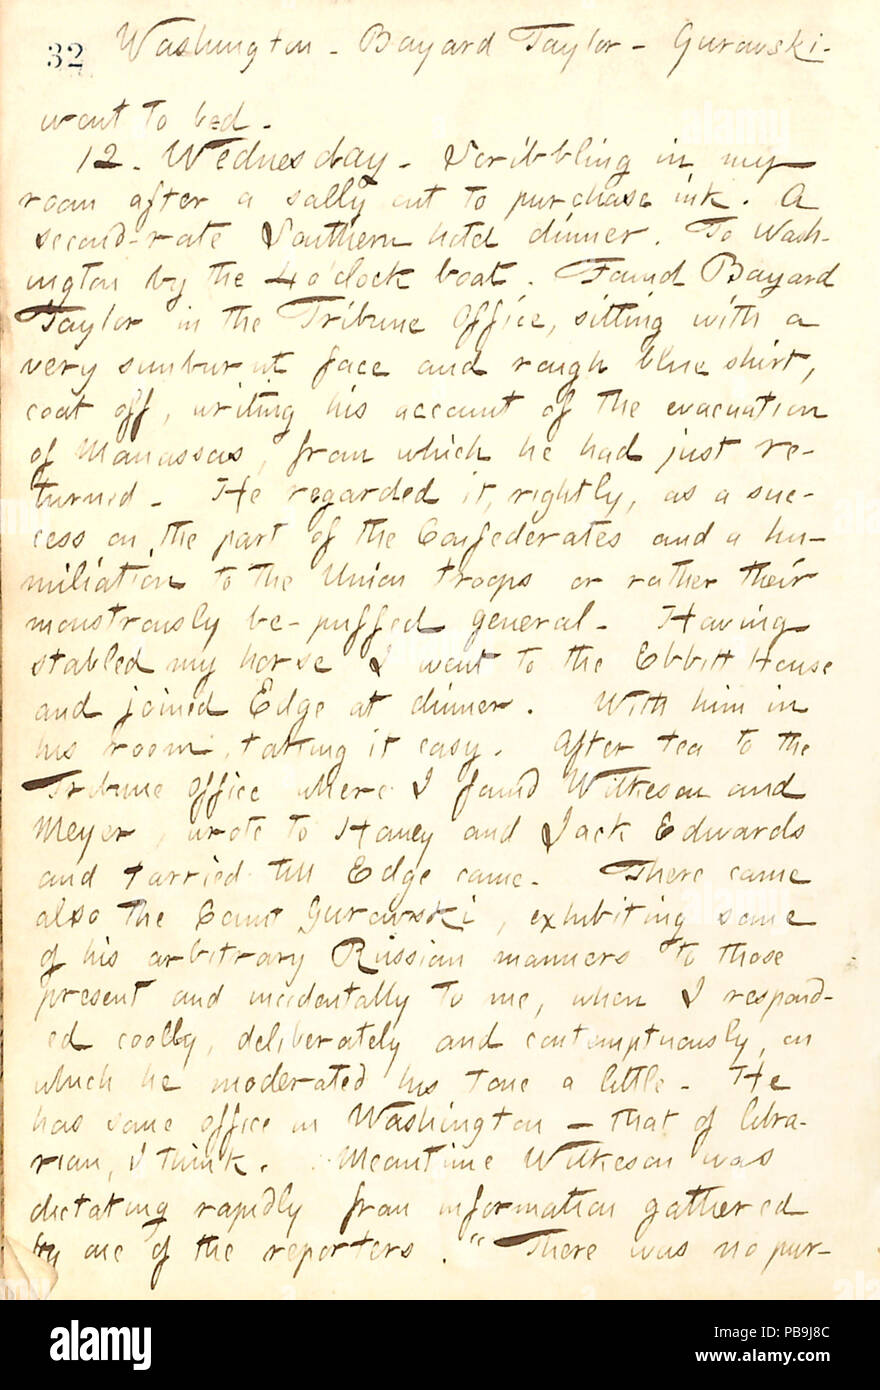 32 Washington - Bayard Taylor - Gurowski -
went to bed.
12. Wednesday. Scribbling in my
room after a sally out to purchase ink. A
second-rate Southern hotel dinner. To Wash-
ington by the 4 o'clock boat. Found Bayard
Taylor in the Tribune Office, sitting with a
very sunburnt face and rough blue shirt,
coat off, writing his account of the evacuation
of Manassas, from which he had just re-
turned. He regarded it, rightly, as a suc-
cess on the part of the Confederates and a hu-
miliation to the Union troops or rather their
monstrously be-puffed general. Having
stabled my horse I went to the Ebbitt House
and joined Edge at dinner. With him in
his room, taking it easy. After tea to the
Tribune Office where I found Wilkeson and
Meyer, wrote to Haney and Jack Edwards
and tarried till Edge came. There came
also the Count Gurowski, exhibiting some
of his arbitrary Russian manners to those
present and incidentally to me, when I respond-
ed coolly, deliberately and contemptuously, on
which he moderated his tone a little. He
has some office in Washington - that of libra-
rian, I think. Meantime Wilkeson was
dictating rapidly from information gathered
by one of the reporters. "There was no pur-
alamy
alamy stock photo
PB9J8C
www.alamy.com